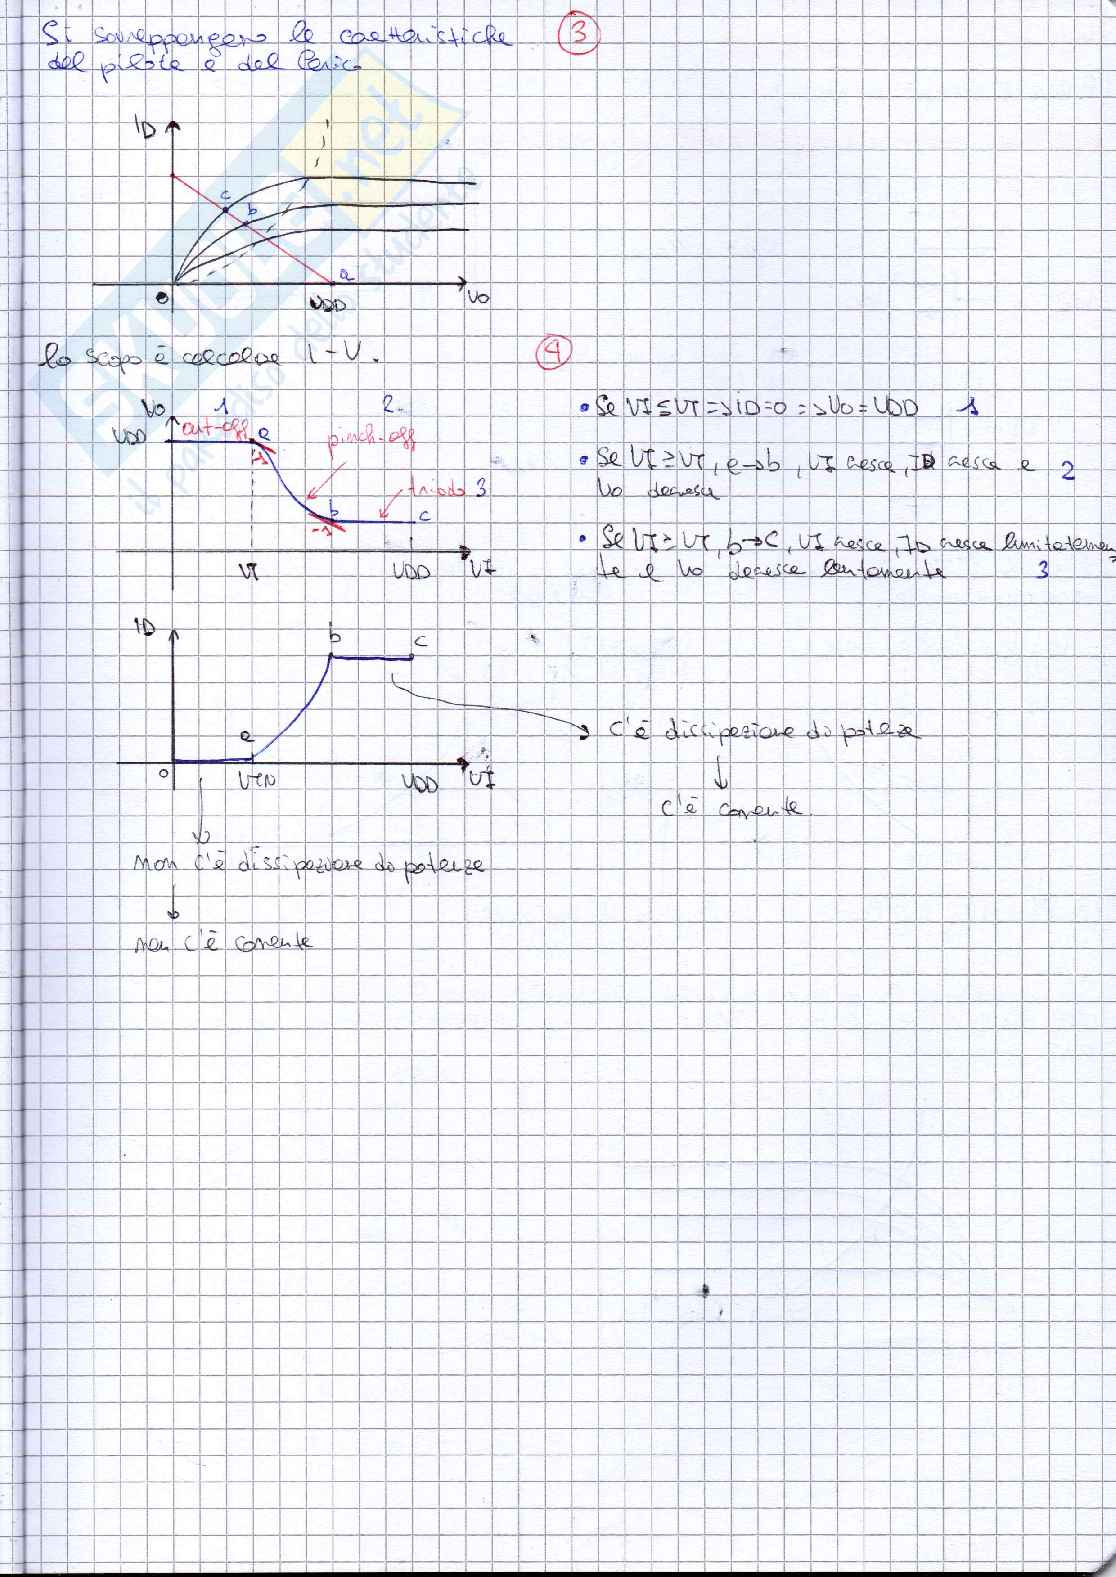 Si sovrappongono le caratteristiche ③
del pilota e del Caric.
ID
c
b
a
0
VDD
Vo
SKUOLA.net
il paradiso dello studente
lo scopo è calcolare I-V. ④
Vo
1
2
VDD
cut-off
a
-1
pinch-off
triodo 3
b
-1
c
VT
VDD
VI
• Se VI ≤ VT => iD=0 => Vo = VDD 1
• Se VI ≥ VT, a→b, VI cresce, ID cresce e 2
Vo decresce
• Se VI ≥ VT, b→c, VI cresce, ID cresce limitatamen
te e Vo decresce lentamente 3
ID
b
c
a
0
VTN
VDD
VI
c'è dissipazione di potenza
c'è corrente.
non c'è dissipazione di potenza
non c'è corrente